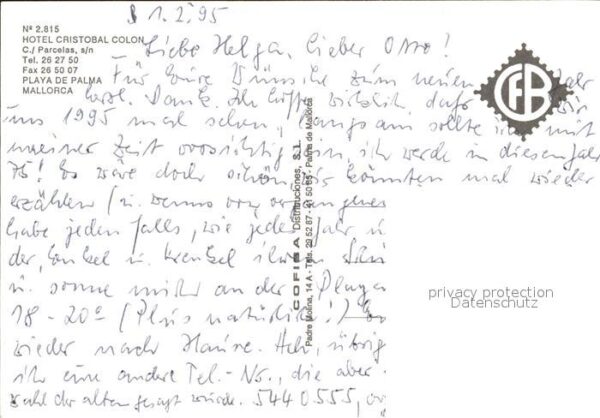 § 1.2.95
Nº 2.815
HOTEL CRISTOBAL COLON
C./ Parcelas, s/n
Tel. 26 27 50
Fax 26 50 07
PLAYA DE PALMA
MALLORCA
Liebe Helga, lieber Otto!
Für Eure Wünsche zum neuen
herzl. Dank. Ich hoffe wirklich, daß wir
uns 1995 mal sehen, langsam sollte ich mit
meiner Zeit vorsichtig sein, ich werde in diesem Jahr
75! Es wäre doch schön, wir könnten mal wieder
erzählen
habe jedenfalls, wie jedes Jahr
u. sonne mich an der Playa
18-20° (Plus natürlich!)
wieder nach Hause. Ach, übrig
ich eine andere Tel.-Nr., die aber
der alten gesagt würde. 5440555,
CFB
COFIBA Distribuciones, S.L.
Padre Molina, 14 A - Tels. 29 52 67 - 41 50 65 - Palma de Mallorca
privacy protection
Datenschutz